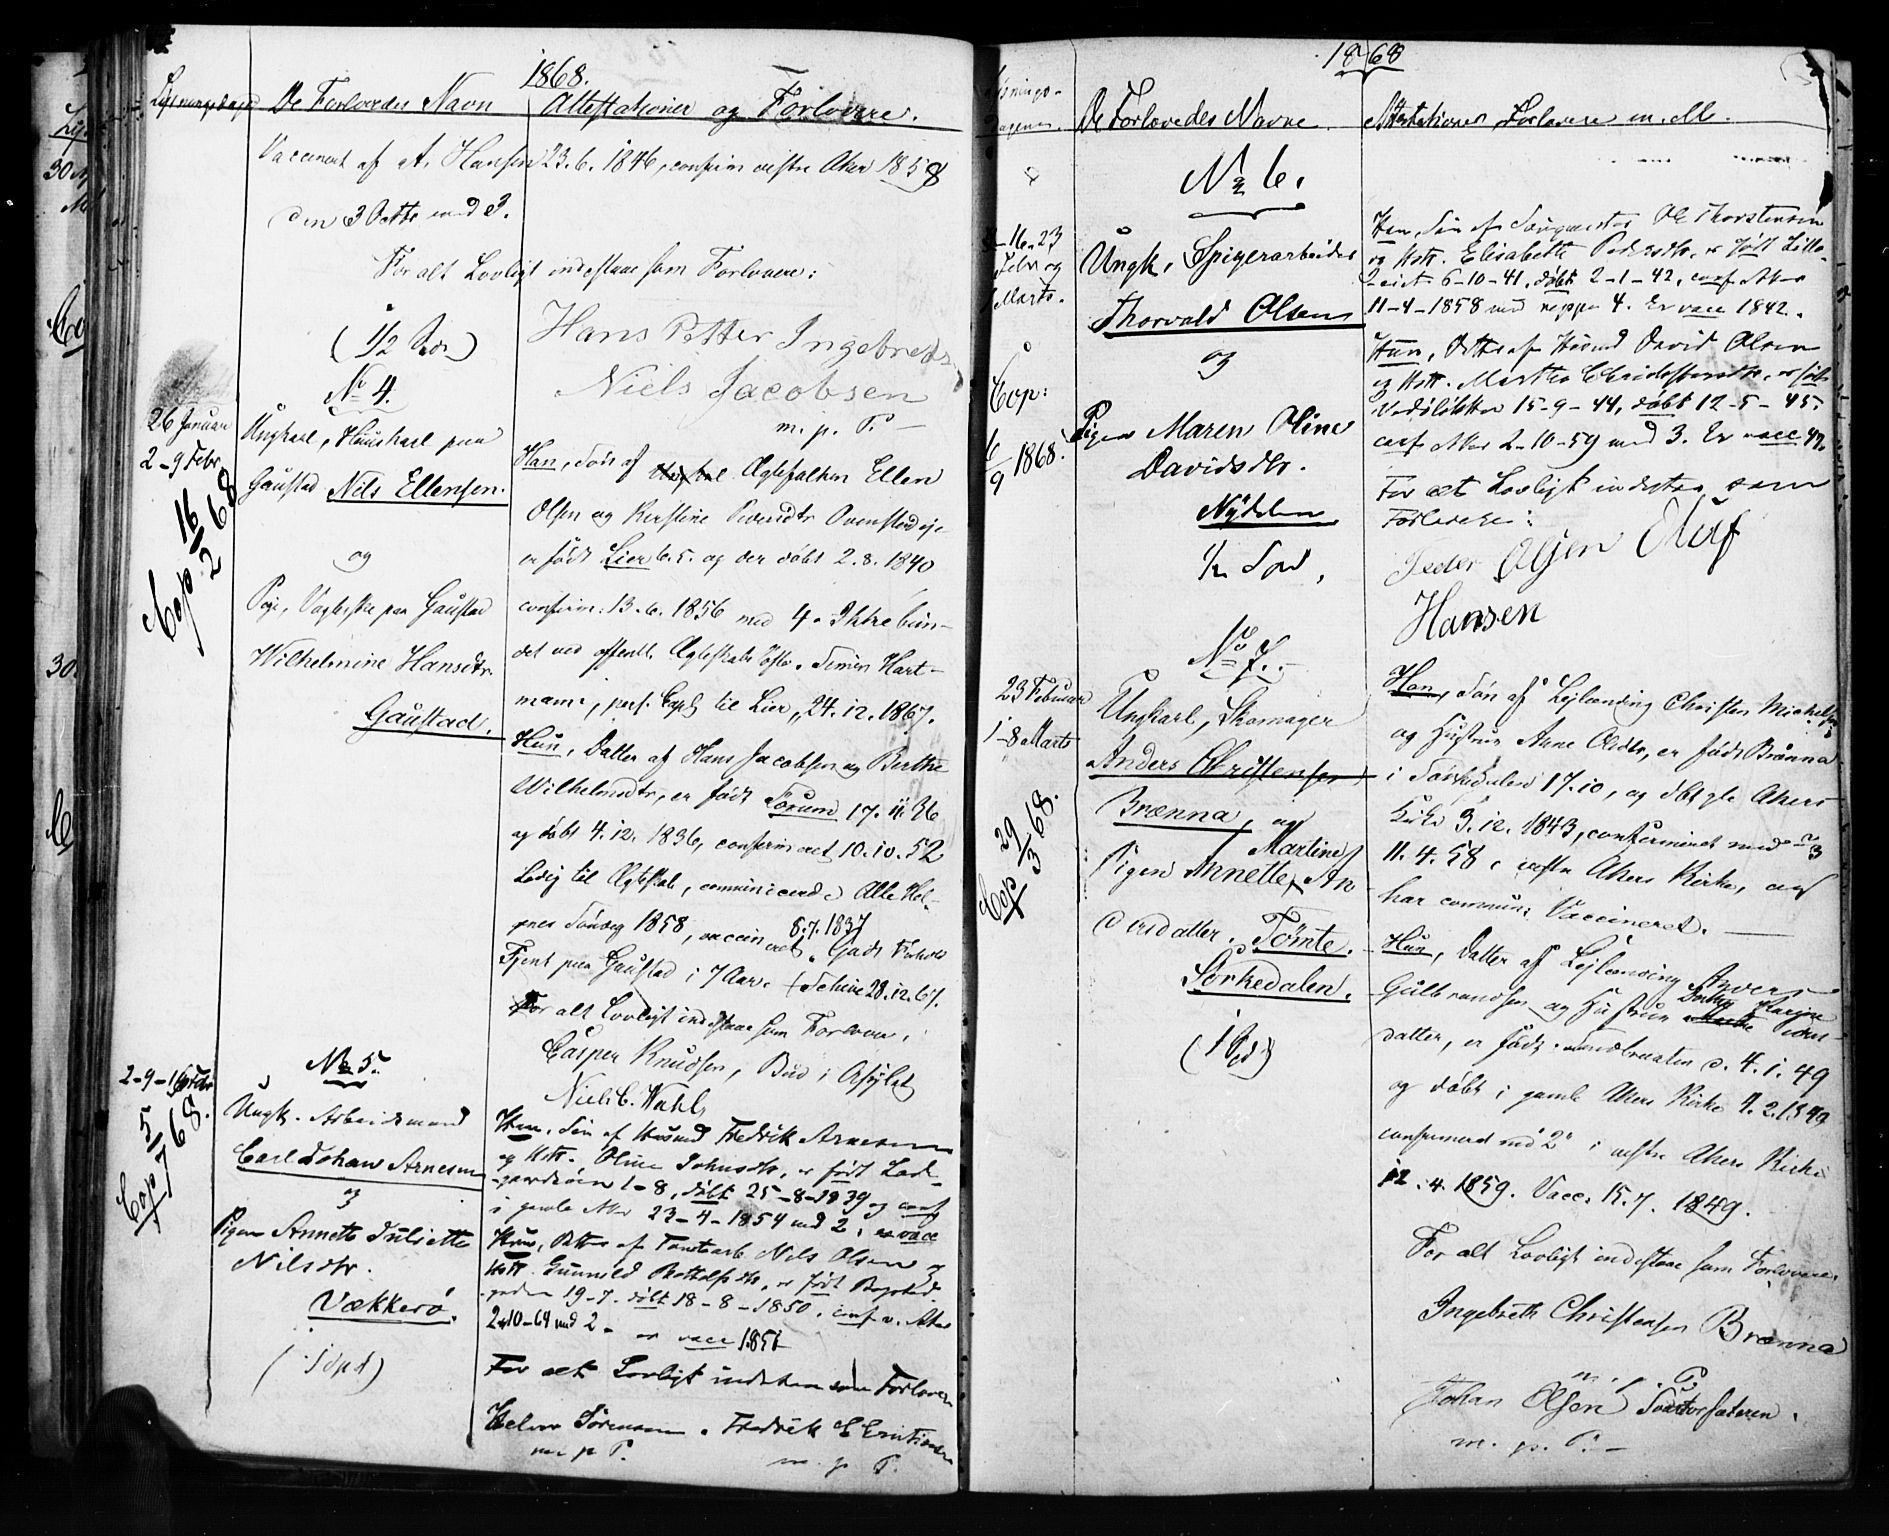 1868.
De Forlovedes Navn
Attestationer og Forlovere.
Vaccineret af A. Hansen 23.6.1846, confirm. vestre Aker 1858
den 3 Octbr med 3.
For alt Lovligt indestaae som Forlovere:
(1/2 Spd)
Hans Petter Ingebretsen
Niels Jacobsen
m. p. P.
26 Januar
2-9 Febr.
Cop 16/2 68
No 4.
Ungkarl, Huuskarl paa
Gaustad Nils Ellensen.
og
Pige, Vagterske paa Gaustad
Wilhelmine Hansdtr.
Gaustad.
Han, Søn af Ægtefolken Ellen
Olsen og Kirstine
er født Lier 6.5. og der døbt 2.8.1840
confirm: 13.6.1856 med 4. Ikke bun-
det ved offentl. Ægteskabsløfte. Simen Hart-
mann, pers. Capl. til Lier, 24.12.1867.
Hun, Datter af Hans Jacobsen og Berthe
Wilhelmsdtr, er født Sørum 17.11.36
og døbt 4.12.1836, confirmeret 10.10.52
Ledig til Ægteskab, communicerede Alle Hel-
gnes Søndag 1858, vaccineret 8.7.1837
Tjent paa Gaustad i 7 Aar. 28.12.67.
For alt Lovligt indestaae som Forlovere:
Casper Knudsen, Bud i Asylet
2-9-16 Febr
Cop 5/7 68.
No 5.
Ungk. Arbeidsmand
Carl Johan Arnesen
og
Pigen Annette Juliette
Nilsdtr.
Vækkerø.
(1 Spd)
Han, Søn af Husmd Fredrik Arnesen
og Hstr. Oline Johnsdtr, er født Lade-
gaardsøen 1-8, døbt 25-8-1839 og conf
i gamle Aker 23-4-1854 med 2, er vacc
Hun, Datter af Nils Olsen og
Hstr. Gunnild er født Bogstad
19-7. døbt 18-8-1850. conf v. Aker
2-10-64 med 2. er vacc 1851
For alt Lovligt indestaae som Forlovere
Helvor Sørensen. Fredrik
m p P. m. p P.
1868
Lysnings-
Dagene.
De Forlovedes Navne
Attestationer, Forlovere m. M.
No 6.
16-23
Febr og
1 Marts.
Cop:
6/9 1868.
Ungk. Spigerarbeider
Thorvald Olsen
og
Pigen Maren Oline
Davidsdtr.
Nydalen
1/2 Spd.
Han, Søn af Ole Thorstensen
og Hstr. Elisabeth Pedersdtr, er født Lille-
6-10-41, døbt 2-1-42, conf Aker
11-4-1858 med 4. Er vacc 1842.
Hun, Datter af Husmd David Olsen
og Hstr. Marthe er født
15-9-44, døbt 12-5-45.
conf Aker 2-10-59 med 3. Er vacc 47.
For alt Lovligt indestaa som
Forlovere:
Peder Olsen Oluf
Hansen
23 Februar
1-8 Marts
Cop 29/3 68.
No 7.
Ungkarl, Skomager
Anders Christensen
Brænna, og
Pigen Annette Martine An-
dersdatter. Tømte.
Sørkedalen.
(1 Spd)
Han, Søn af Lejlending Christen Michelsen
og Hustru Anne Olsdtr, er født Brænna
i Sørkedalen 17.10, og døbt gle Akers
Kirke 3.12.1843, confirmeret med 3
11.4.58 i vestre Akers Kirke, og
har commun. Vaccineret.
Hun, Datter af Lejlending Anders
Gulbrandsen og Hustru Karine
datter, er født 4.1.49
og døbt i gamle Akers Kirke 4.2.1849
confirmeret med "2" i vestre Akers Kirke
12.4.1859. Vacc. 15.7.1849.
For alt Lovligt indestaae som Forlovere.
Ingebreth Christensen Brænna
m. p. P.
Johan Olsen
m. p. P.